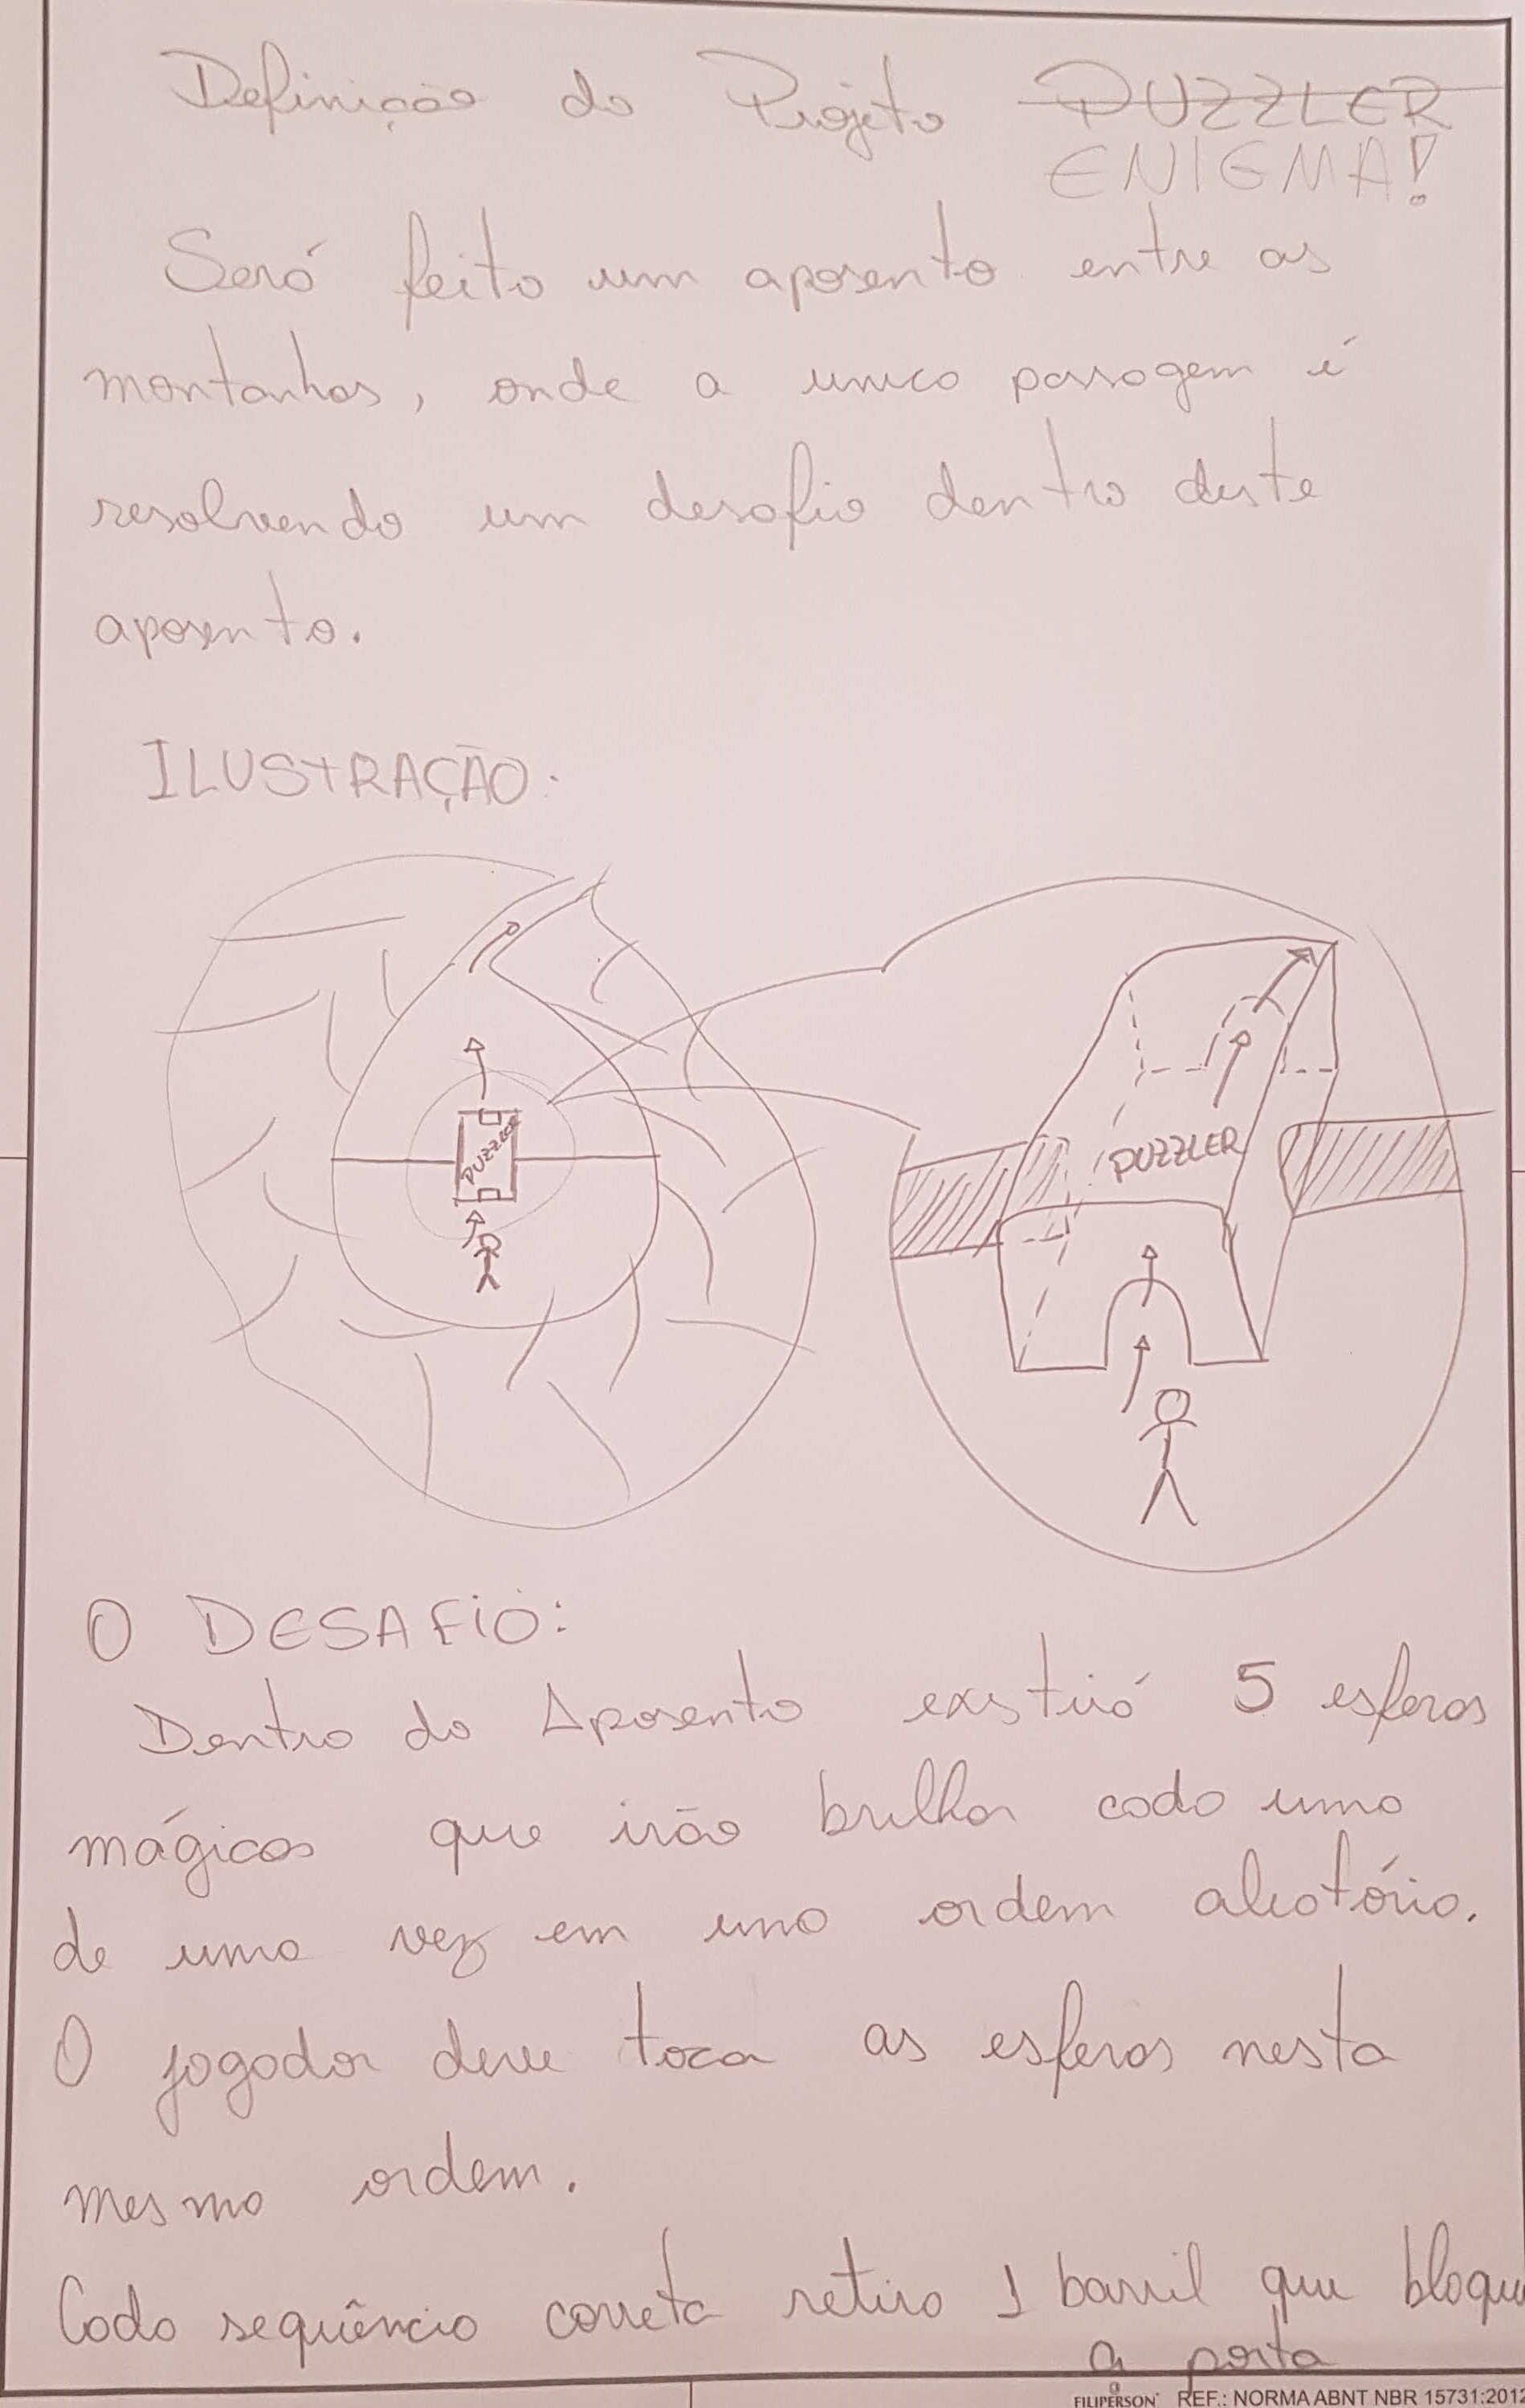 Definição do Projeto PUZZLER
ENIGMA!
Será feito um aposento entre as
montanhas, onde a unica passagem é
resolvendo um desafio dentro deste
aposento.
ILUSTRAÇÃO:
PUZZLER
PUZZLER
O DESAFIO:
Dentro do Aposento existirá 5 esferas
mágicas que irão brilhar cada uma
de uma vez em uma ordem aleatória.
O jogador deve tocar as esferas nesta
mesma ordem.
Cada sequência correta retira 1 barril que bloque
a porta
FILIPERSON REF.: NORMA ABNT NBR 15731:2012